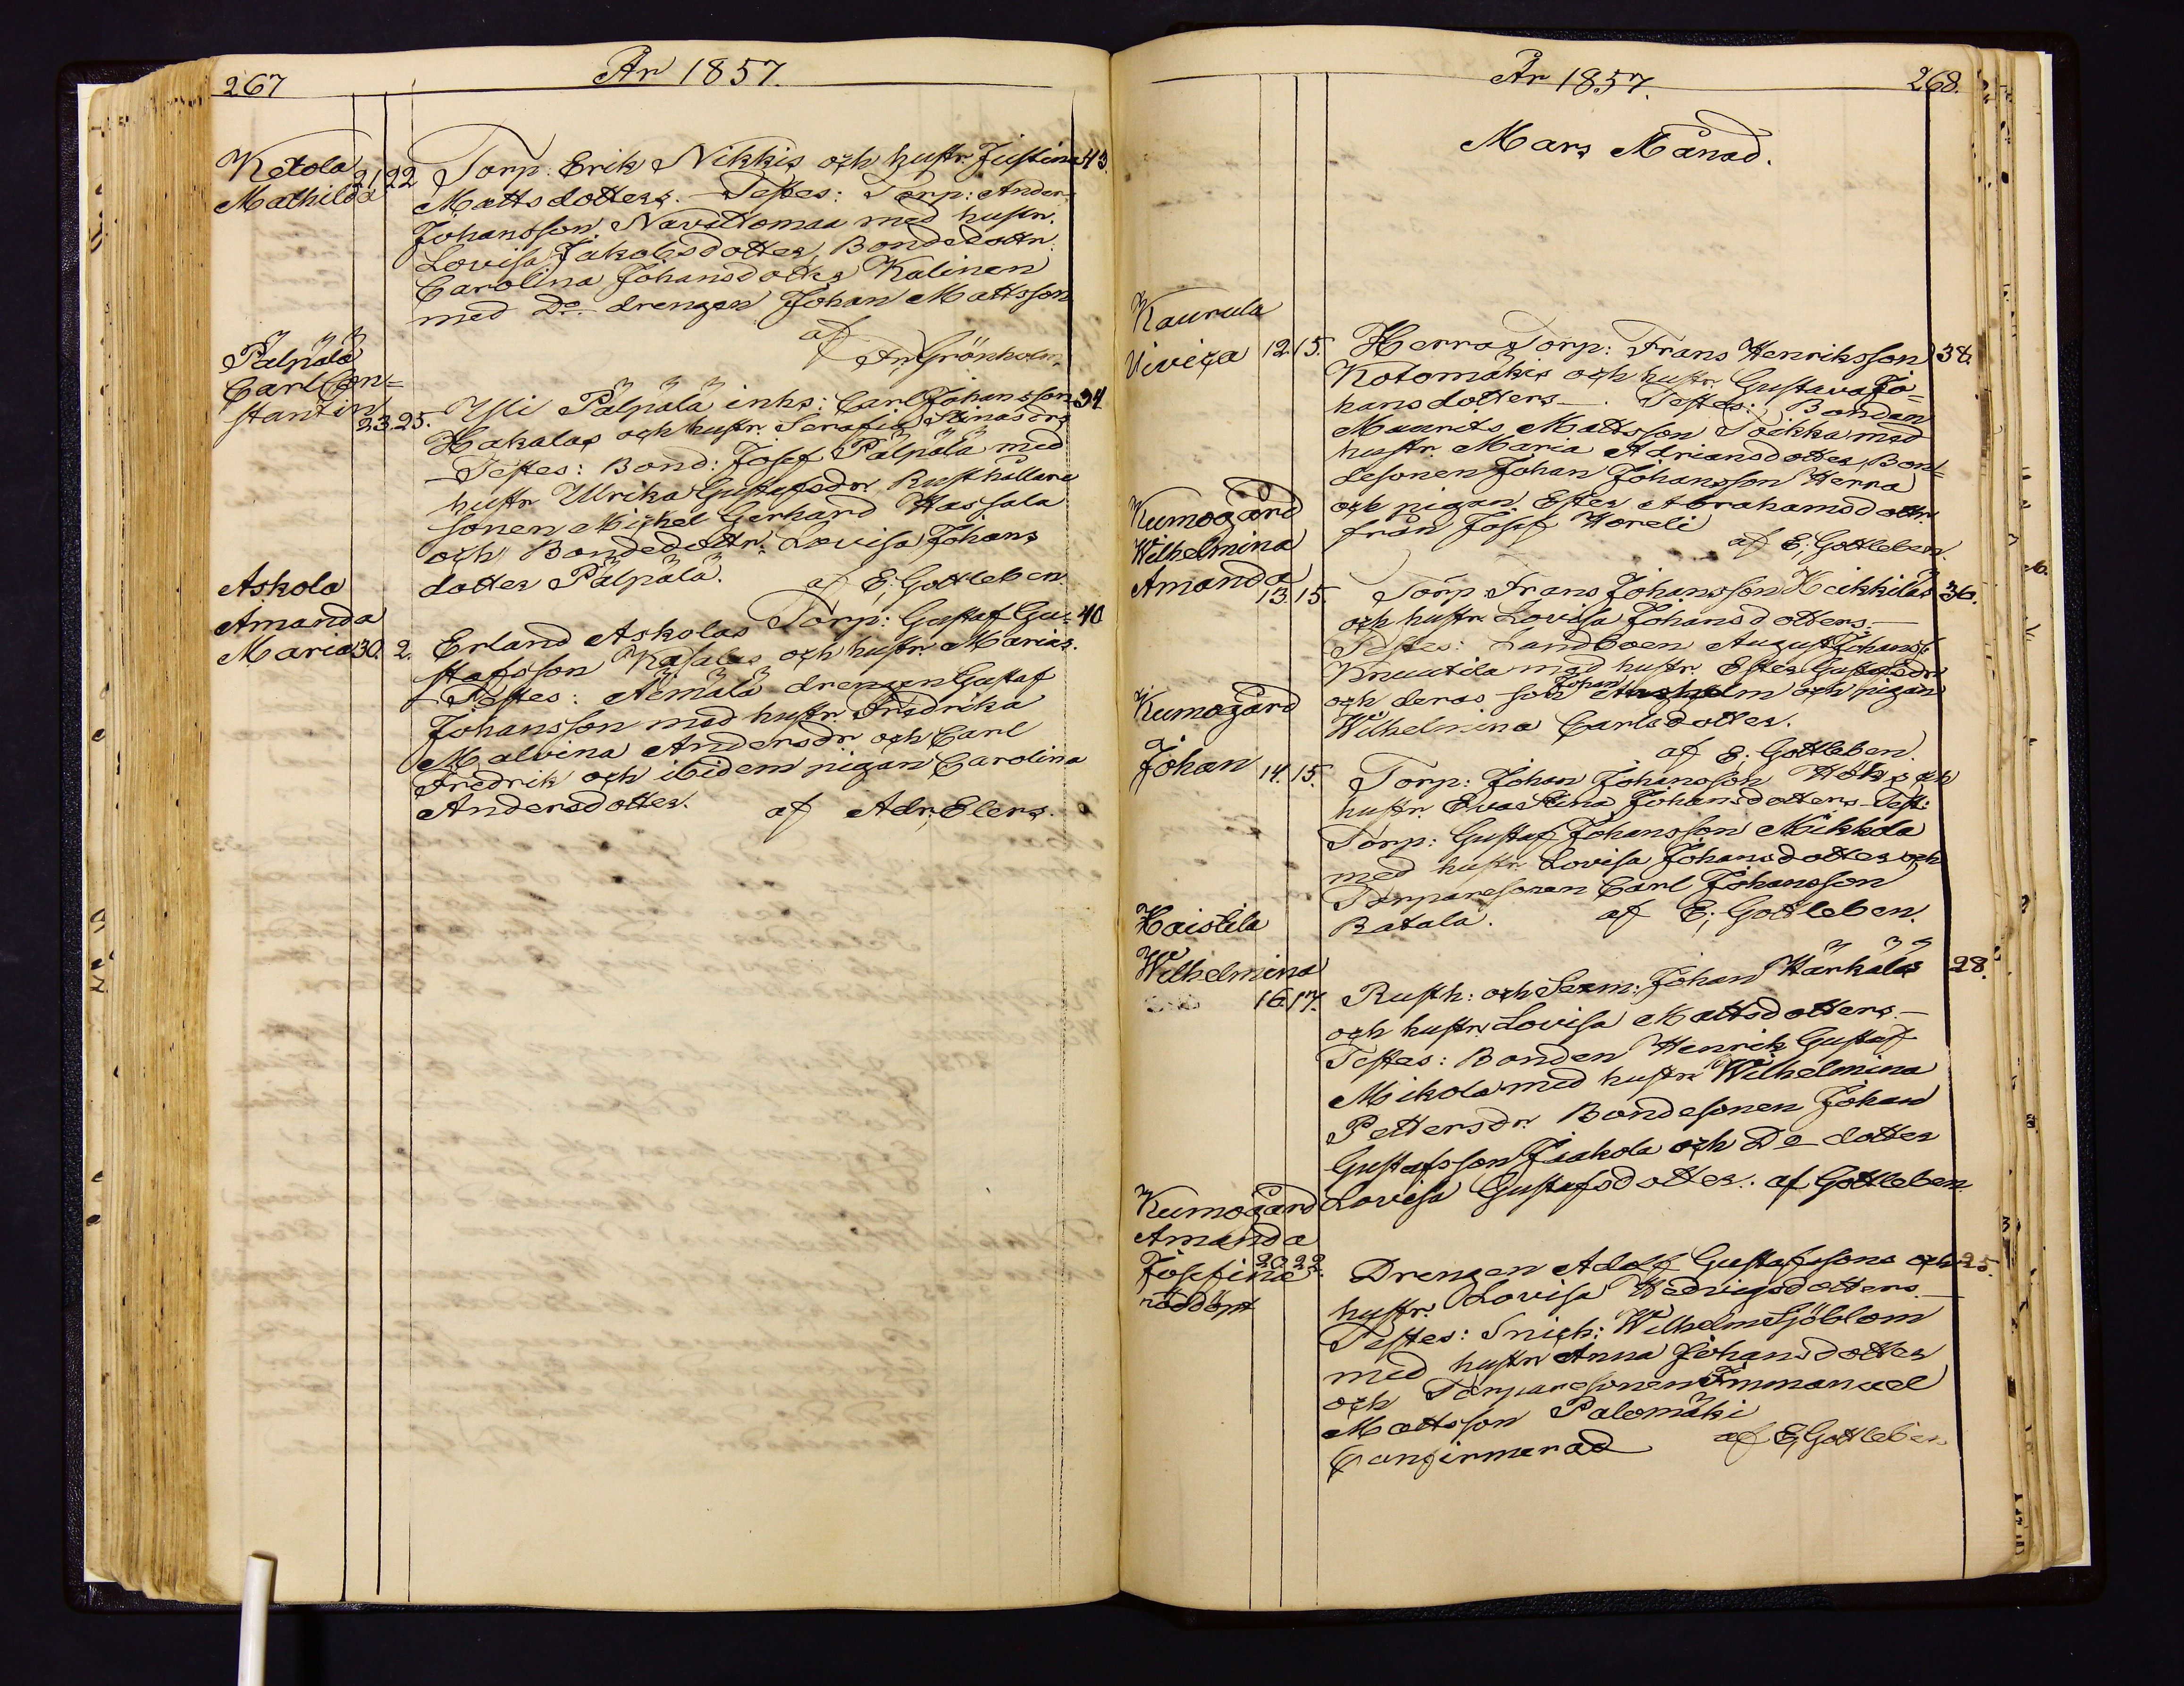 267
År 1857.
Ketola
Mathilda 21 22
Torp. Erik Nikkis och hustr. Justina 43.
Mattsdotters. Testes: Torp: Ander.
Johansson Navettomaa med hustr.
Lovisa Jakobsdotter, Bondedottr.
Carolina Johansdotter Kalinen
med Do. drengen Johan Mattsson
af
Ar. Grönholm.
Pälpälä
Carl Con=
stantin 23. 25.
Ysti Pälpälä inhs: Carl Johansson 34
Hakalas och hustr. Serafia Stinasdrs
Testes: Bond: Josef Pälpälä med
hustr Ulrika Gustafsdr. Rusthållare
sonen Michel Gerhard Hassala
och Bondedottr. Lovisa Johans
dotter Pälpälä. af E; Gottleben.
Askola
Amanda
Maria 30. 2.
Erland Askolas Torp: Gustaf Gu= 40
stafsson Kasalas och hustr Marias.
Testes: Äimälä drengen Gustaf
Johansson med hustr Fredrika
Malvina Andersdr och Carl
Fredrik och ibidem pigan Carolina
Andersdotter. af Adr; Elers.
År 1857.
268.
Mars Månad.
Kaurula
Viviça 12. 15.
Herra Torp: Frans Henriksson 38.
Kotomäkis och hustr. Gustava Jo=
hansdotters. Testes: Bonden
Maurits Mattsson Poikka med
hustr Maria Adriansdotter, Bon=
desonen Johan Johansson Herra
och pigan Ester Abrahamsdottr.
från Josef Horeli
af E; Gottleben.
Kumogård
Wilhelmina
Amanda 13. 15.
Torp Frans Johansson Heikkiläs 36.
och hustr Lovisa Johansdotters.
Testes: Landboen August Johans.
Knuutila med hustr. Ester Gustafsdr
och deras son Johan Anshelm och pigan
Wilhelmina Carlsdotter.
af E; Gottleben.
Kumogård
Johan 14. 15.
Torp: Johan Johansson Höks och
hustr. Eva Stina Johansdotters Test:
Torp: Gustaf Johansson Mikkola
med hustr. Lovisa Johansdotter och
Torparesonen Carl Johansson
Ratala. af E; Gottleben.
Haistila
Wilhelmina
16 17.
Rusth: och Sexm: Johan Härkäläs 28.
och hustr. Lovisa Mattsdotters.
Testes: Bonden Henrik Gustaf
Mikola med hustr Wilhelmina
Pettersdr. Bondesonen Johan
Gustafsson Jaakola och Do dotter
Lovisa Gustafsdotter. af Gottleben
Kumogård
Amanda
Josefina 20 22.
nöddöpt
Drengen Adolf Gustafssons och 25.
hustr. Lovisa Hedvigsdotters.
Testes: Snick: Wilhelm Sjöblom
med hustr Anna Johansdotter
och Torparesonen Immanuel
Mattsson Palomäki
Confirmerad af E; Gottleben